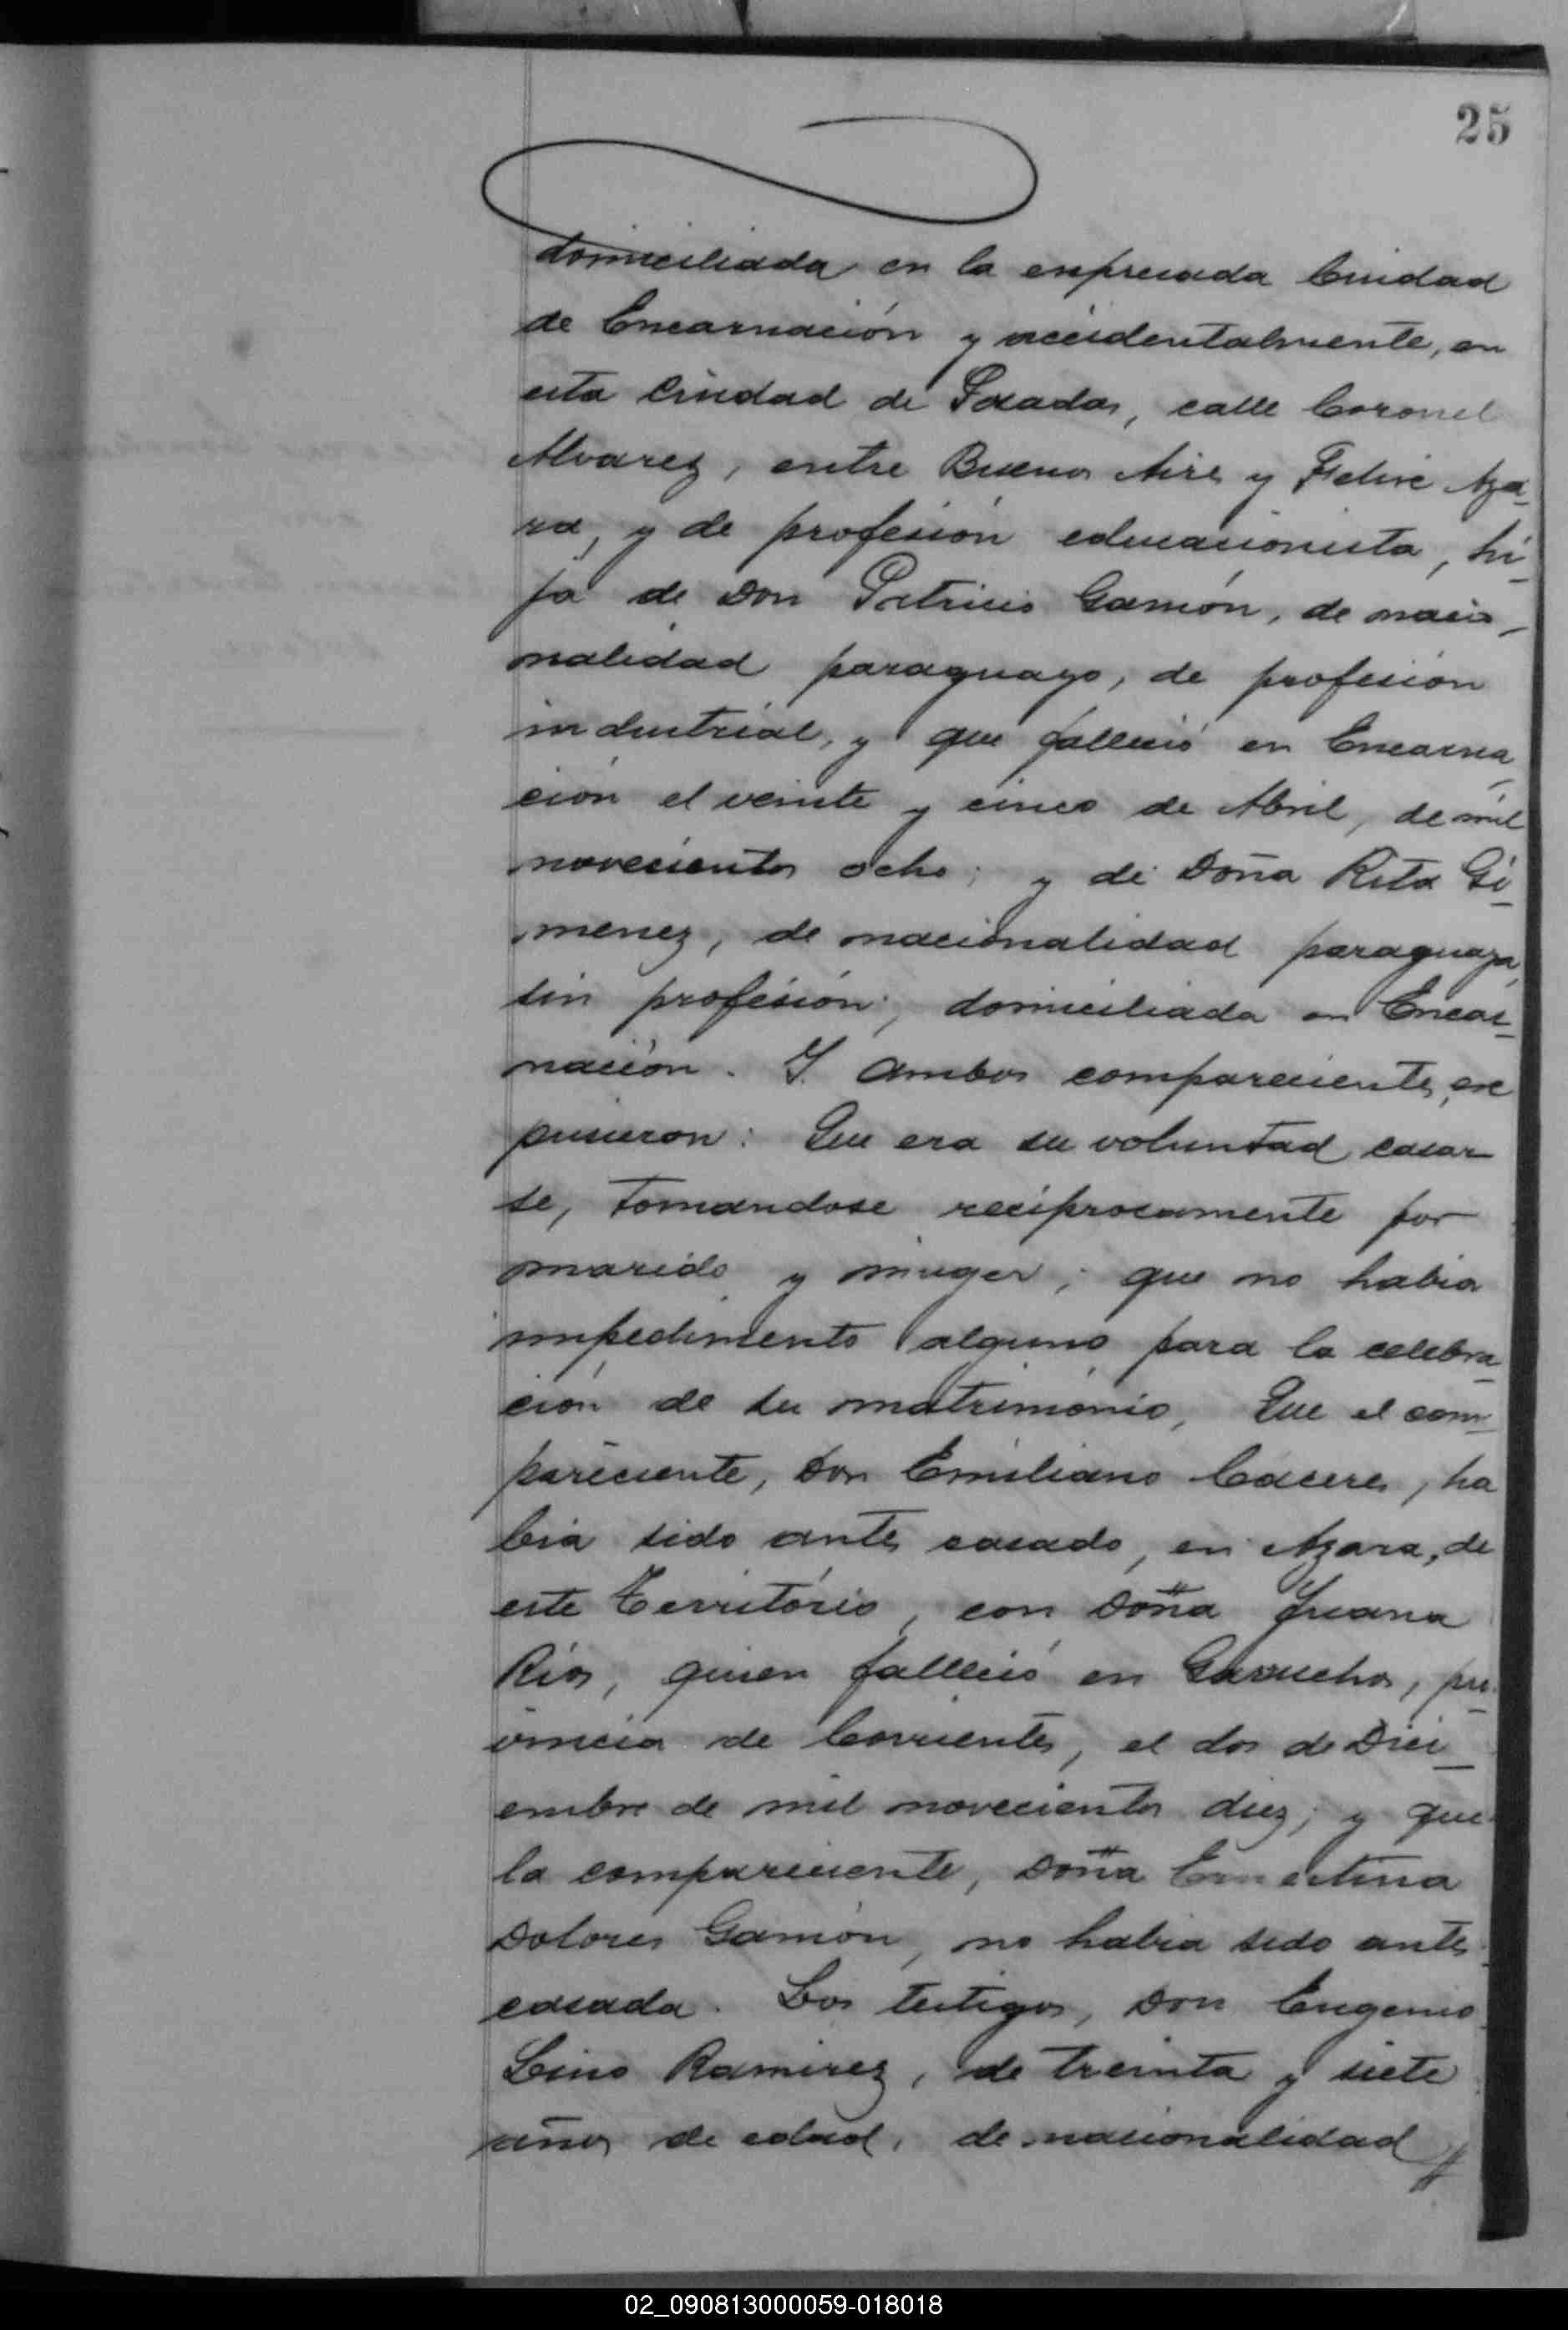 25
domiciliada en la expresada Ciudad
de Encarnación y accidentalmente, en
esta Ciudad de Posadas, calle Coronel
Alvarez, entre Buenos Aires y Felix Aza-
ra, y de profesión educacionista, hi-
ja de Don Patricio Gamón, de nacio-
nalidad paraguayo, de profesión
industrial, y que falleció en Encarna-
ción el veinte y cinco de Abril, de mil
novecientos ocho; y de Doña Rita Gi-
menez, de nacionalidad paraguaya,
sin profesión, domiciliada en Encar-
nación. Y ambos comparecientes, ex
pusieron: Que era su voluntad casar
se, tomandose reciprocamente por
marido y muger; que no habia
impedimento alguno para la celebra-
ción de su matrimonio, Que el com-
pareciente, Don Emiliano Cáceres, ha
bia sido antes casado, en Azara, de
este Territorio, con Doña Juana
Rios, quien falleció en Garruchos, pro-
vincia de Corrientes, el dos de Dici-
embre de mil novecientos diez; y que
la compareciente, Doña Ernestina
Dolores Gamón, no habia sido antes
casada. Los testigos, Don Eugenio
Lino Ramirez, de treinta y siete
años de edad, de nacionalidad
02_090813000059-018018